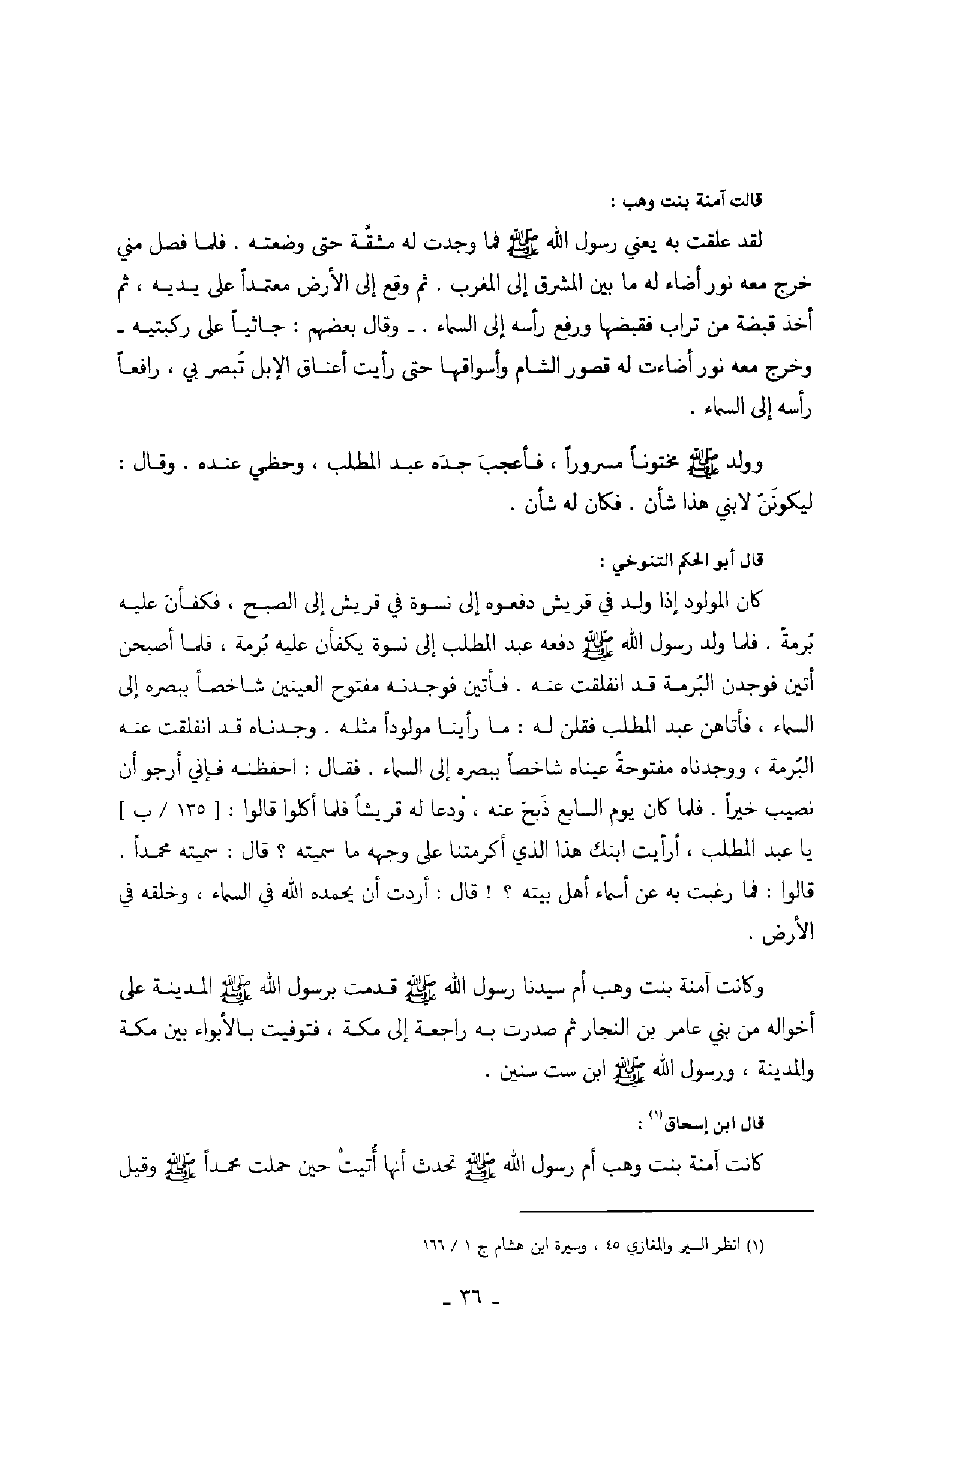 قالت آمنة بنت وهب :
لقد علقت به يعني رسول الله ﷺ فما وجدت له مشقَّة حتى وضعته . فلما فصل مني
خرج معه نور أضاء له ما بين المشرق إلى المغرب . ثم وقع إلى الأرض معتمداً على يديه ، ثم
أخذ قبضة من تراب فقبضها ورفع رأسه إلى السماء . ـ وقال بعضهم : جاثياً على ركبتيه ـ
وخرج معه نور أضاءت له قصور الشام وأسواقها حتى رأيت أعناق الإبل تُبصر بي ، رافعاً
رأسه إلى السماء .
وولد ﷺ مختوناً مسروراً ، فأعجبَ جدَه عبد المطلب ، وحظي عنده . وقال :
ليكونَنّ لابني هذا شأن . فكان له شأن .
قال أبو الحكم التنوخي :
كان المولود إذا ولد في قريش دفعوه إلى نسوة في قريش إلى الصبح ، فكفأنَ عليه
بُرمةً . فلما ولد رسول الله ﷺ دفعه عبد المطلب إلى نسوة يكفأن عليه بُرمة ، فلما أصبحن
أتين فوجدن البُرمة قد انفلقت عنه . فأتين فوجدنه مفتوح العينين شاخصاً ببصره إلى
السماء ، فأتاهن عبد المطلب فقلن له : ما رأينا مولوداً مثله . وجدناه قد انفلقت عنه
البُرمة ، ووجدناه مفتوحةً عيناه شاخصاً ببصره إلى السماء . فقال : احفظنه فإني أرجو أن
نصيب خيراً . فلما كان يوم السابع ذَبحَ عنه ، ودعا له قريشاً فلما أكلوا قالوا : [ ١٣٥ / ب ]
يا عبد المطلب ، أرأيت ابنك هذا الذي أكرمتنا على وجهه ما سميته ؟ قال : سميته محمداً .
قالوا : فما رغبت به عن أسماء أهل بيته ؟ ! قال : أردت أن يحمده الله في السماء ، وخلقه في
الأرض .
وكانت آمنة بنت وهب أم سيدنا رسول الله ﷺ قدمت برسول الله ﷺ المدينة على
أخواله من بني عامر بن النجار ثم صدرت به راجعة إلى مكة ، فتوفيت بالأبواء بين مكة
والمدينة ، ورسول الله ﷺ ابن ست سنين .
قال ابن إسحاق(١) :
كانت آمنة بنت وهب أم رسول الله ﷺ تحدث أنها أُتيتْ حين حملت محمداً ﷺ وقيل
(١) انظر السير والمغازي ٤٥ ، وسيرة ابن هشام ج ١ / ١٦٦
ـ ٣٦ ـ